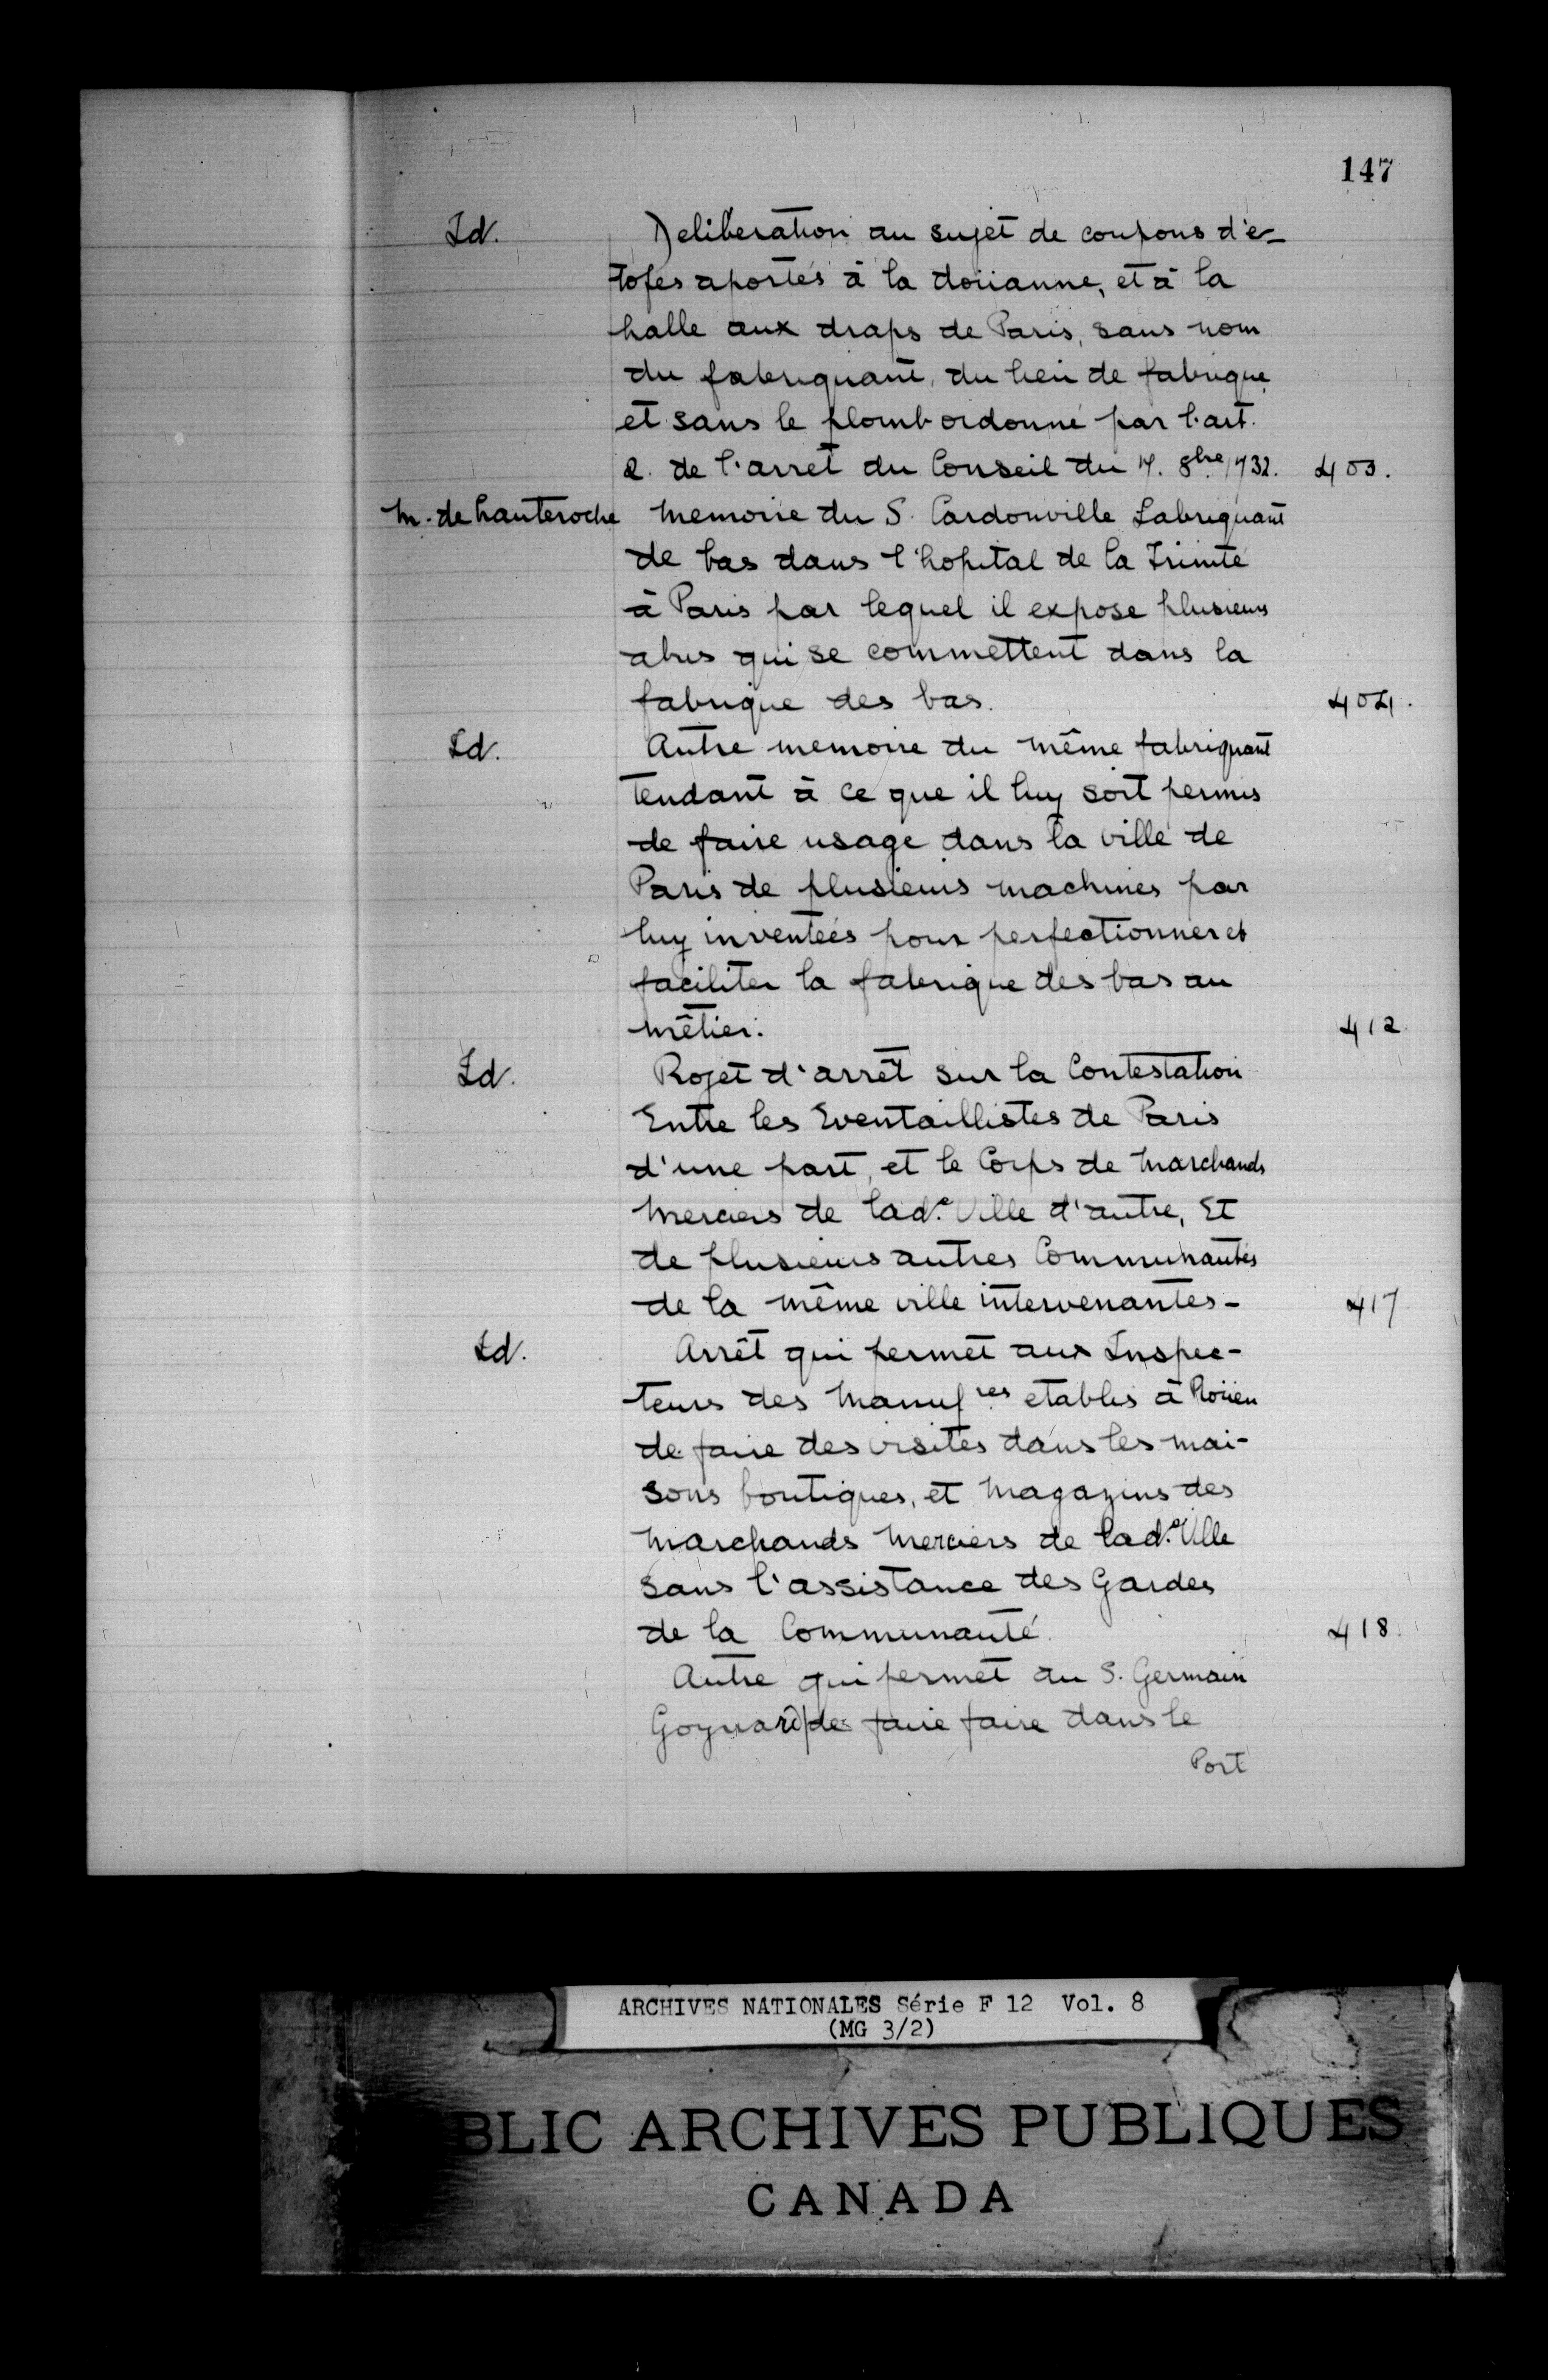 147
Id. Deliberation au sujet de coupons d'é-
tofes aportés à la doüanne, et à la
halle aux draps de Paris, sans nom
du fabriquant, du lieu de fabrique
et sans le plomb ordonné par l'art.
2. de l'arret du Conseil du 7. 8bre 1732. 403.
M. de hauteroche Memoire du S. Cardonville Fabriquant
de bas dans l'hopital de la Trinité
à Paris par lequel il expose plusieurs
abus qui se commettent dans la
fabrique des bas. 404.
Id. Autre memoire du même fabriquant
tendant à ce que il luy soit permis
de faire usage dans la ville de
Paris de plusieurs machines par
luy inventées pour perfectionner et
faciliter la fabrique des bas au
mêtier. 412
Id. Projet d'arrêt sur la Contestation
Entre les Eventaillistes de Paris
d'une part, et le Corps de Marchands
Merciers de lad.e Ville d'autre, Et
de plusieurs autres Communautés
de la même ville intervenantes - 417
Id. Arrêt qui permet aux Inspec-
teurs des Manuf.res etablis à Roüen
de faire des visites dans les mai-
sons boutiques, et Magazins des
Marchands Merciers de lad.e Ville
sans l'assistance des Gardes
de la Communauté. 418.
Autre qui permet au S. Germain
de faire faire dans le
Port
ARCHIVES NATIONALES Série F 12 Vol. 8
(MG 3/2)
BLIC ARCHIVES PUBLIQUES
CANADA